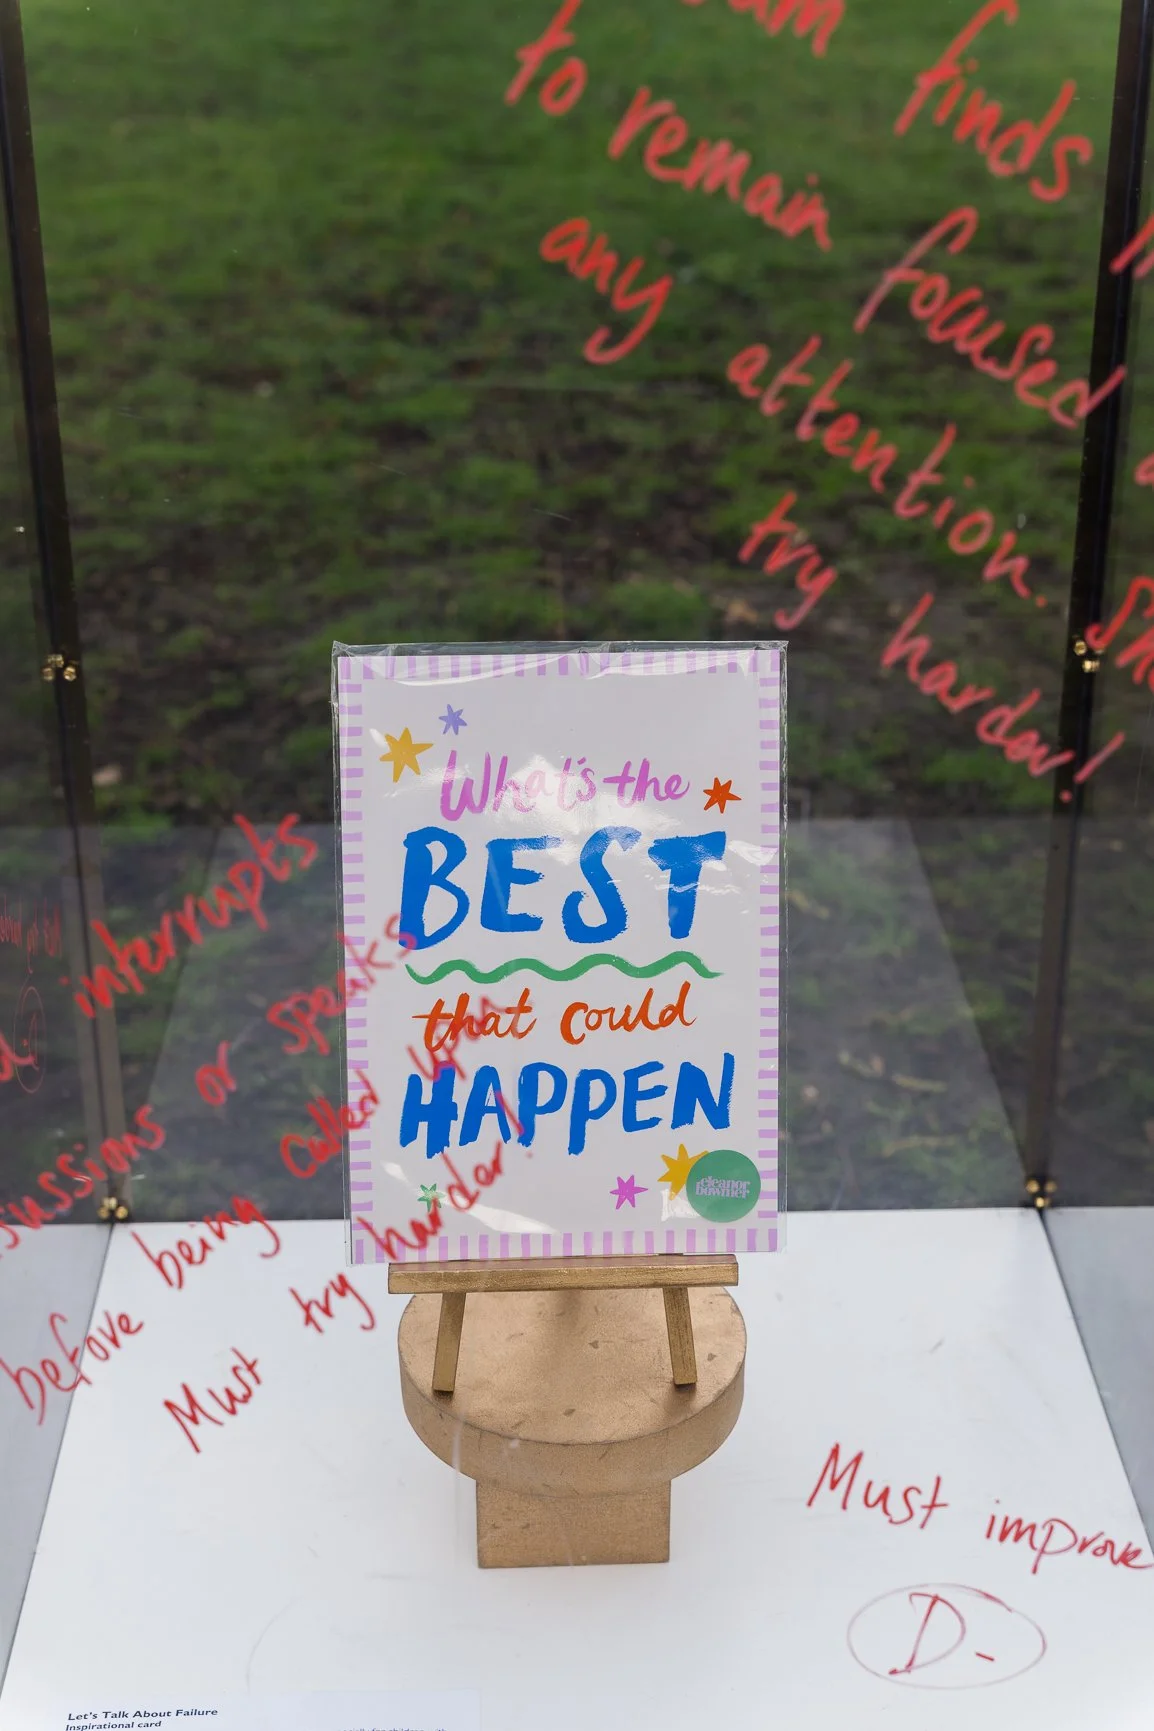 finds
to remain focused
any attention.
try harder!
What's the
BEST
that could
HAPPEN
eleanor
bowmer
interrupts
or speaks
before being called upon
Must try harder!
Must improve
D-
Let's Talk About Failure
Inspirational card